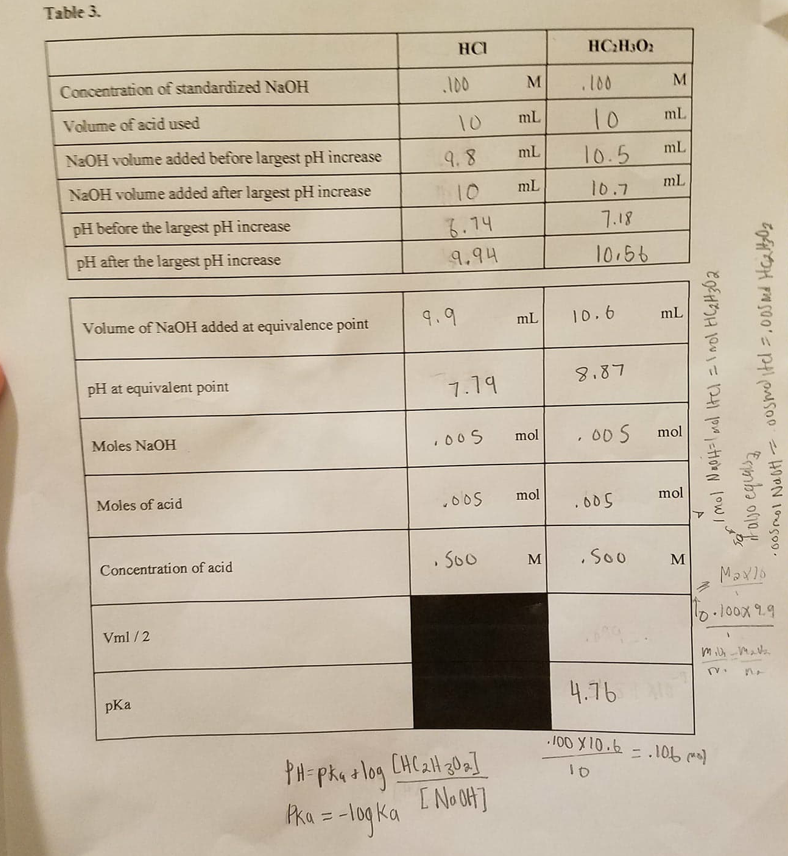 Table 3.
HCl HC2H3O2
Concentration of standardized NaOH .100 M .100 M
Volume of acid used 10 mL 10 mL
NaOH volume added before largest pH increase 9.8 mL 10.5 mL
NaOH volume added after largest pH increase 10 mL 10.7 mL
pH before the largest pH increase .74 7.18
pH after the largest pH increase 9.94 10.56
Volume of NaOH added at equivalence point 9.9 mL 10.6 mL
pH at equivalent point 7.79 8.87
Moles NaOH .005 mol .005 mol
Moles of acid .005 mol .005 mol
Concentration of acid .500 M .500 M
Vml / 2
pKa 4.76
PH=pKa+log [HC2H3O2]
[NaOH]
PKa = -logKa
.100 X 10.6 = .106 mol
10
1 mol NaOH=1 mol HCl = 1 mol HC2H3O2
it also equals
.005mol NaOH = .005mol HCl = .005mol HC2H3O2
M2x10
.100x9.9
M1V1 = M2V2